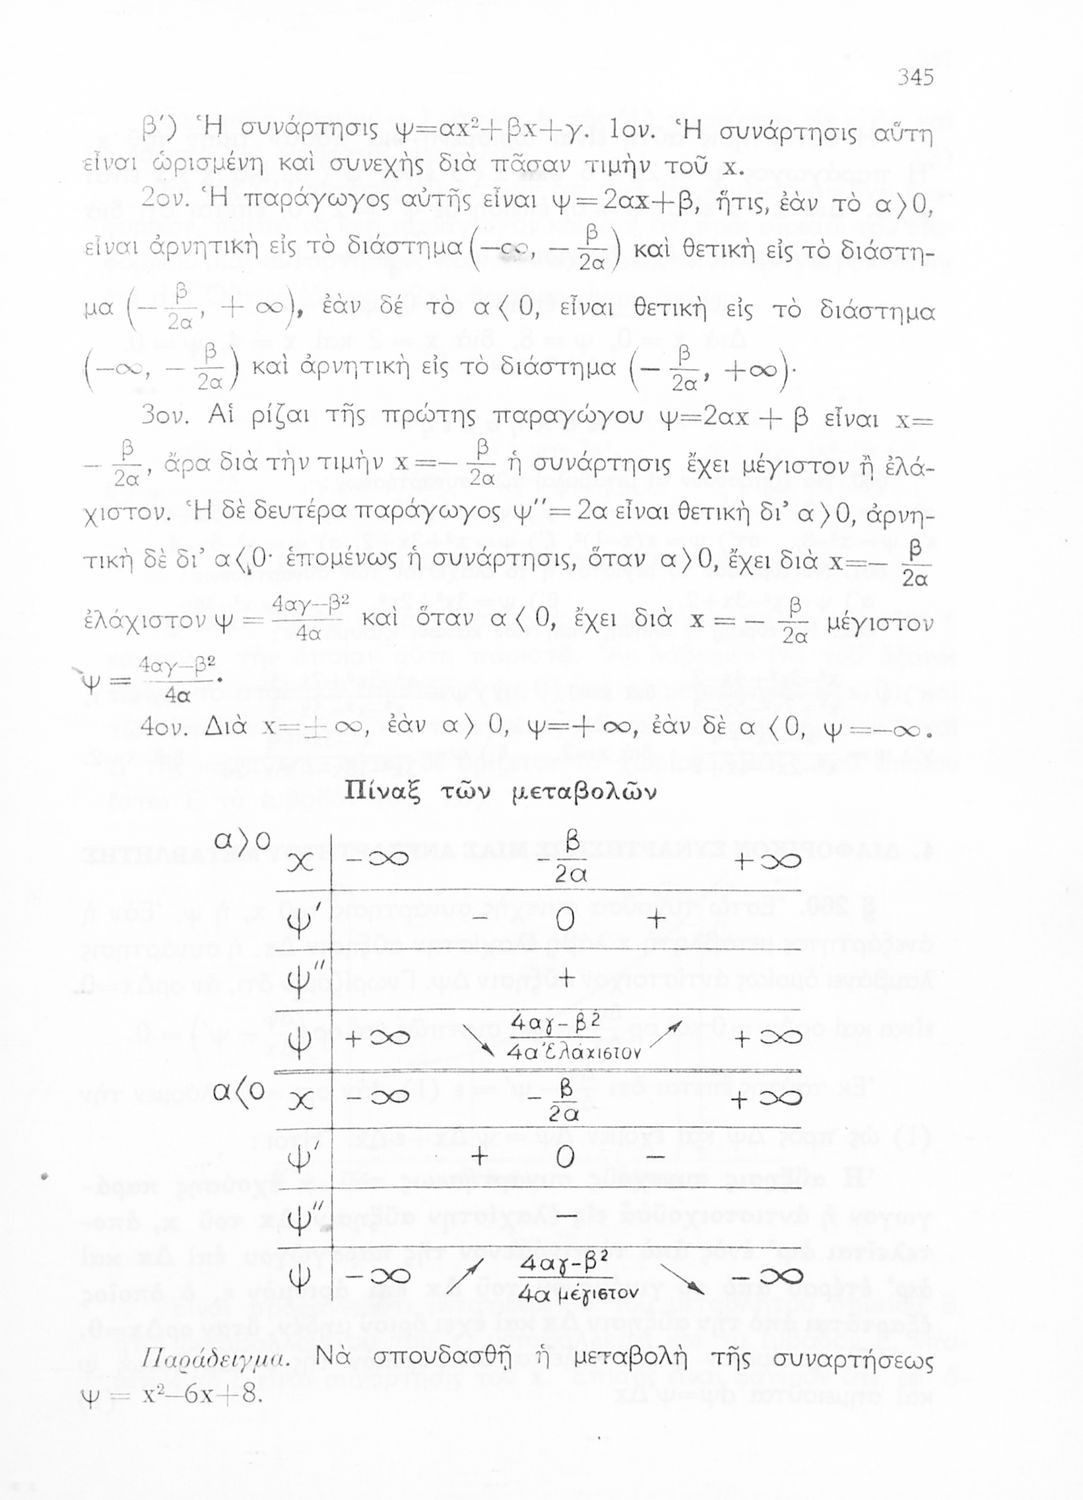 345
β′) Ἡ συνάρτησις ψ=αx²+βx+γ. 1ον. Ἡ συνάρτησις αὕτη
εἶναι ὡρισμένη καὶ συνεχὴς διὰ πᾶσαν τιμὴν τοῦ x.
2ον. Ἡ παράγωγος αὐτῆς εἶναι ψ=2αx+β, ἥτις, ἐὰν τὸ α⟩0,
εἶναι ἀρνητικὴ εἰς τὸ διάστημα (—∞, — β/2α) καὶ θετικὴ εἰς τὸ διάστη-
μα (— β/2α, + ∞), ἐὰν δέ τὸ α⟨0, εἶναι θετικὴ εἰς τὸ διάστημα
(—∞, — β/2α) καὶ ἀρνητικὴ εἰς τὸ διάστημα (— β/2α, +∞)·
3ον. Αἱ ρίζαι τῆς πρώτης παραγώγου ψ=2αx + β εἶναι x=
— β/2α, ἄρα διὰ τὴν τιμὴν x=— β/2α ἡ συνάρτησις ἔχει μέγιστον ἢ ἐλά-
χιστον. Ἡ δὲ δευτέρα παράγωγος ψ″=2α εἶναι θετικὴ δι᾽ α⟩0, ἀρνη-
τικὴ δὲ δι᾽ α⟨0· ἑπομένως ἡ συνάρτησις, ὅταν α⟩0, ἔχει διὰ x=— β/2α
ἐλάχιστον ψ = 4αγ—β²/4α καὶ ὅταν α⟨0, ἔχει διὰ x = — β/2α μέγιστον
ψ = 4αγ—β²/4α.
4ον. Διὰ x=±∞, ἐὰν α⟩0, ψ=+∞, ἐὰν δὲ α⟨0, ψ=—∞.
Πίναξ τῶν μεταβολῶν
α⟩0 x −∞ −β/2α +∞
ψ′ − 0 +
ψ″ +
ψ +∞ ↘ 4αγ−β²/4α ἐλάχιστον ↗ +∞
α⟨0 x −∞ −β/2α +∞
ψ′ + 0 −
ψ″ −
ψ −∞ ↗ 4αγ−β²/4α μέγιστον ↘ −∞
Παράδειγμα. Νὰ σπουδασθῇ ἡ μεταβολὴ τῆς συναρτήσεως
ψ = x²—6x+8.